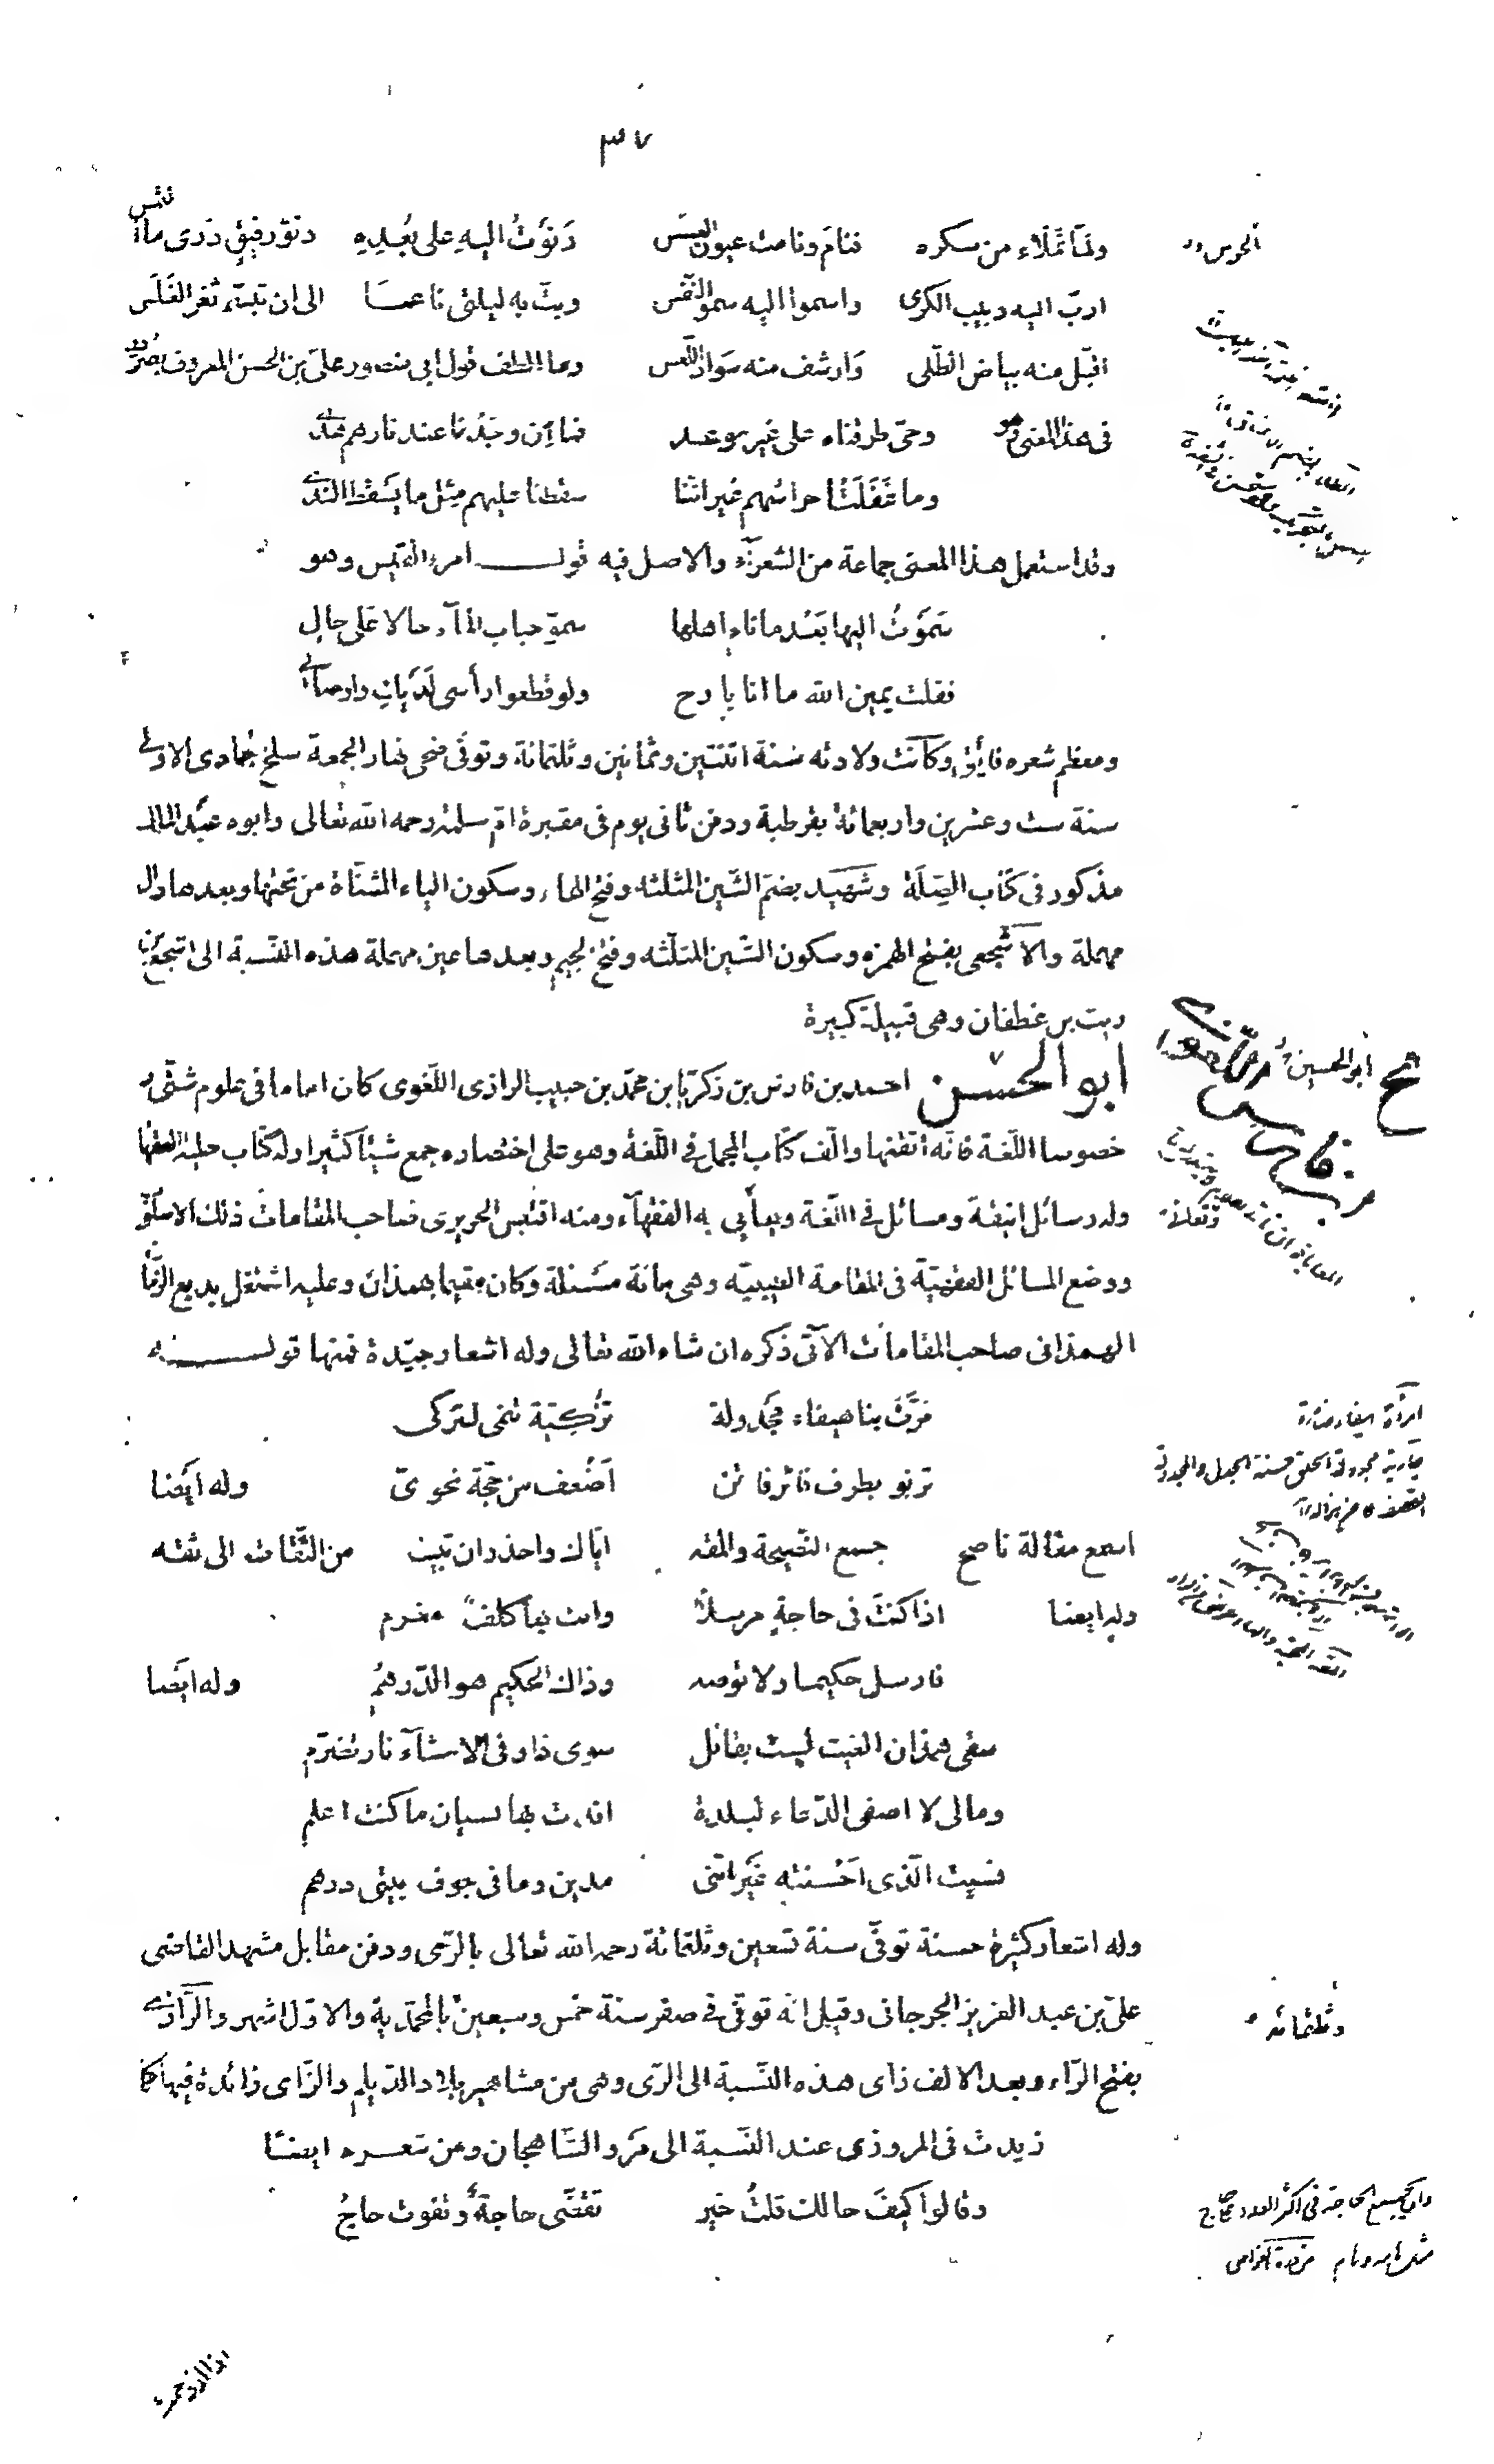 ٣٧
ولمّا تملّاء من سكره فنام ونامت عيون العسس دَنَوْتُ اليهِ على بُعْدِهِ دنوّ رفيقٍ درى ما التمس
ادبّ اليه دبيب الكرى واسموا اليه سموّ النّفس وبتّ به ليلتى ناعمًا الى ان تبسّم ثغر الغلس
اقبّل منه بياض الطّلى وَارشف منه سَوادَ اللّعس وما الطف قول ابى منصور علىّ بن الحسن المعروف بصُرَّدُرّ
فى هذا المعنى وهو وحىّ طرقناه على غير موعد فما اِن وجَدْنا عند نارهم هدى
وما غَفَلَتْ حراسهم غير انّنا سقطنا عليهم مِثل ما يَسقط الندى
وقد استعمل هذا المعنى جماعة من الشعرآء والاصل فيه قول امرء القيس وهو
سَمَوْتُ اليها بَعْد ما نام اهلها سموّ حباب المآء حالا عَلى حالِ
فقلت يمين الله ما انا بارح ولو قطعوا رأسى لَدَيكِ واوصالى
ومعظم شعره فايق وكانت ولادته سنة اثنتين وثمانين وثلثمائة وتوفّى ضحى نهار الجمعة سلخ جُمادى الاولى
سنة ست وعشرين واربعمائة بقرطبة ودفن ثانى يوم فى مقبرة امّ سلمة رحمه الله تعالى وابوه عبد الملك
مذكور فى كتاب الصِّلَة وشهيد بضمّ الشّين المثلثه وفتح الهاء وسكون الياء المثنّاة من تحتها وبعدها دال
مهملة والاشجعى بفتح الهمزه وسكون الشّين المثلّثه وفتح الجيم وبعدها عين مهملة هذه النّسبة الى اشجع بن
ريث بن غطفان وهى قبيلة كبيرة
ابو الحسن احمد بن فارس بن زكريّا بن محمّد بن حبيب الرازى اللّغوى كان اماما فى علوم شتّى
خصوصا اللّغة فانّه اتقنها والّف كتاب المجمل فى اللّغة وهو على اختصاره جمع شيئا كثيرا وله كتاب حلية الفقها
وله رسائل انيقة ومسائل فى اللّغة ويعايى به الفقهآء ومنه اقتبس الحريرى صاحب المقامات ذلك الاسلوب
ووضع المسائل الفقهيّة فى المقامة الطيبيّه وهى مائة مسئلة وكان مقيما بهمذان وعليه اشتغل بديع الزّما
الهمذانى صاحب المقامات الآتى ذكره ان شاء الله تعالى وله اشعار جيّدة فمنها قوله
مَرَّتْ بنا هيفاء مجدولة تُركيّة تنمى لتركى
ترنو بطرف فاتر فاتن اَضعف من حجّة نحوىّ وله ايضا
اسمع مقالة ناصح جمع النّصيحة والمقه ايّاك واحذر ان تبيت من الثّقات الى ثقه
وله ايضا اذا كنتَ فى حاجةٍ مرسلًا وانت بها كلفٌ مغرم
فارسل حكيما ولا توصه وذاك الحكيم هو الدّرهمُ وله ايضا
سقى همذان الغيث لست بقائل سوى ذا وفى الاحشآء نار تضرّم
ومالى لا اصفى الدّعاء لبلدة افدت بها نسيان ما كنت اعلم
نسيت الّذى احسنته غير انّنى مدين وما فى جوف بيتى درهم
وله اشعار كثيرة حسنة توفّى سنة تسعين وثلثمائة رحمه الله تعالى بالرّى ودفن مقابل مشهد القاضى
علىّ بن عبد العزيز الجرجانى وقيل انّه توفّى فى صفر سنة خمس وسبعين بالمحمّدية والاوّل اشهر والرّازى
بفتح الرّاء وبعد الالف زاى هذه النّسبة الى الرّى وهى من مشاهير بلاد الدّيلم والزّاى زائدة فيها كما
زيدت فى المروزى عند النّسبة الى مرو الشّاهجان ومن شعره ايضًا
وقالوا كيفَ حالك قلتُ خير تقضّى حاجةٌ وتفوت حاجُ
الحرس
ابو الحسين
بن فارس اللّغوى الرّازى
امرأة هيفاء ضامرة
جارية مجدولة الخلق حسنة الجدل
وثلثمائه